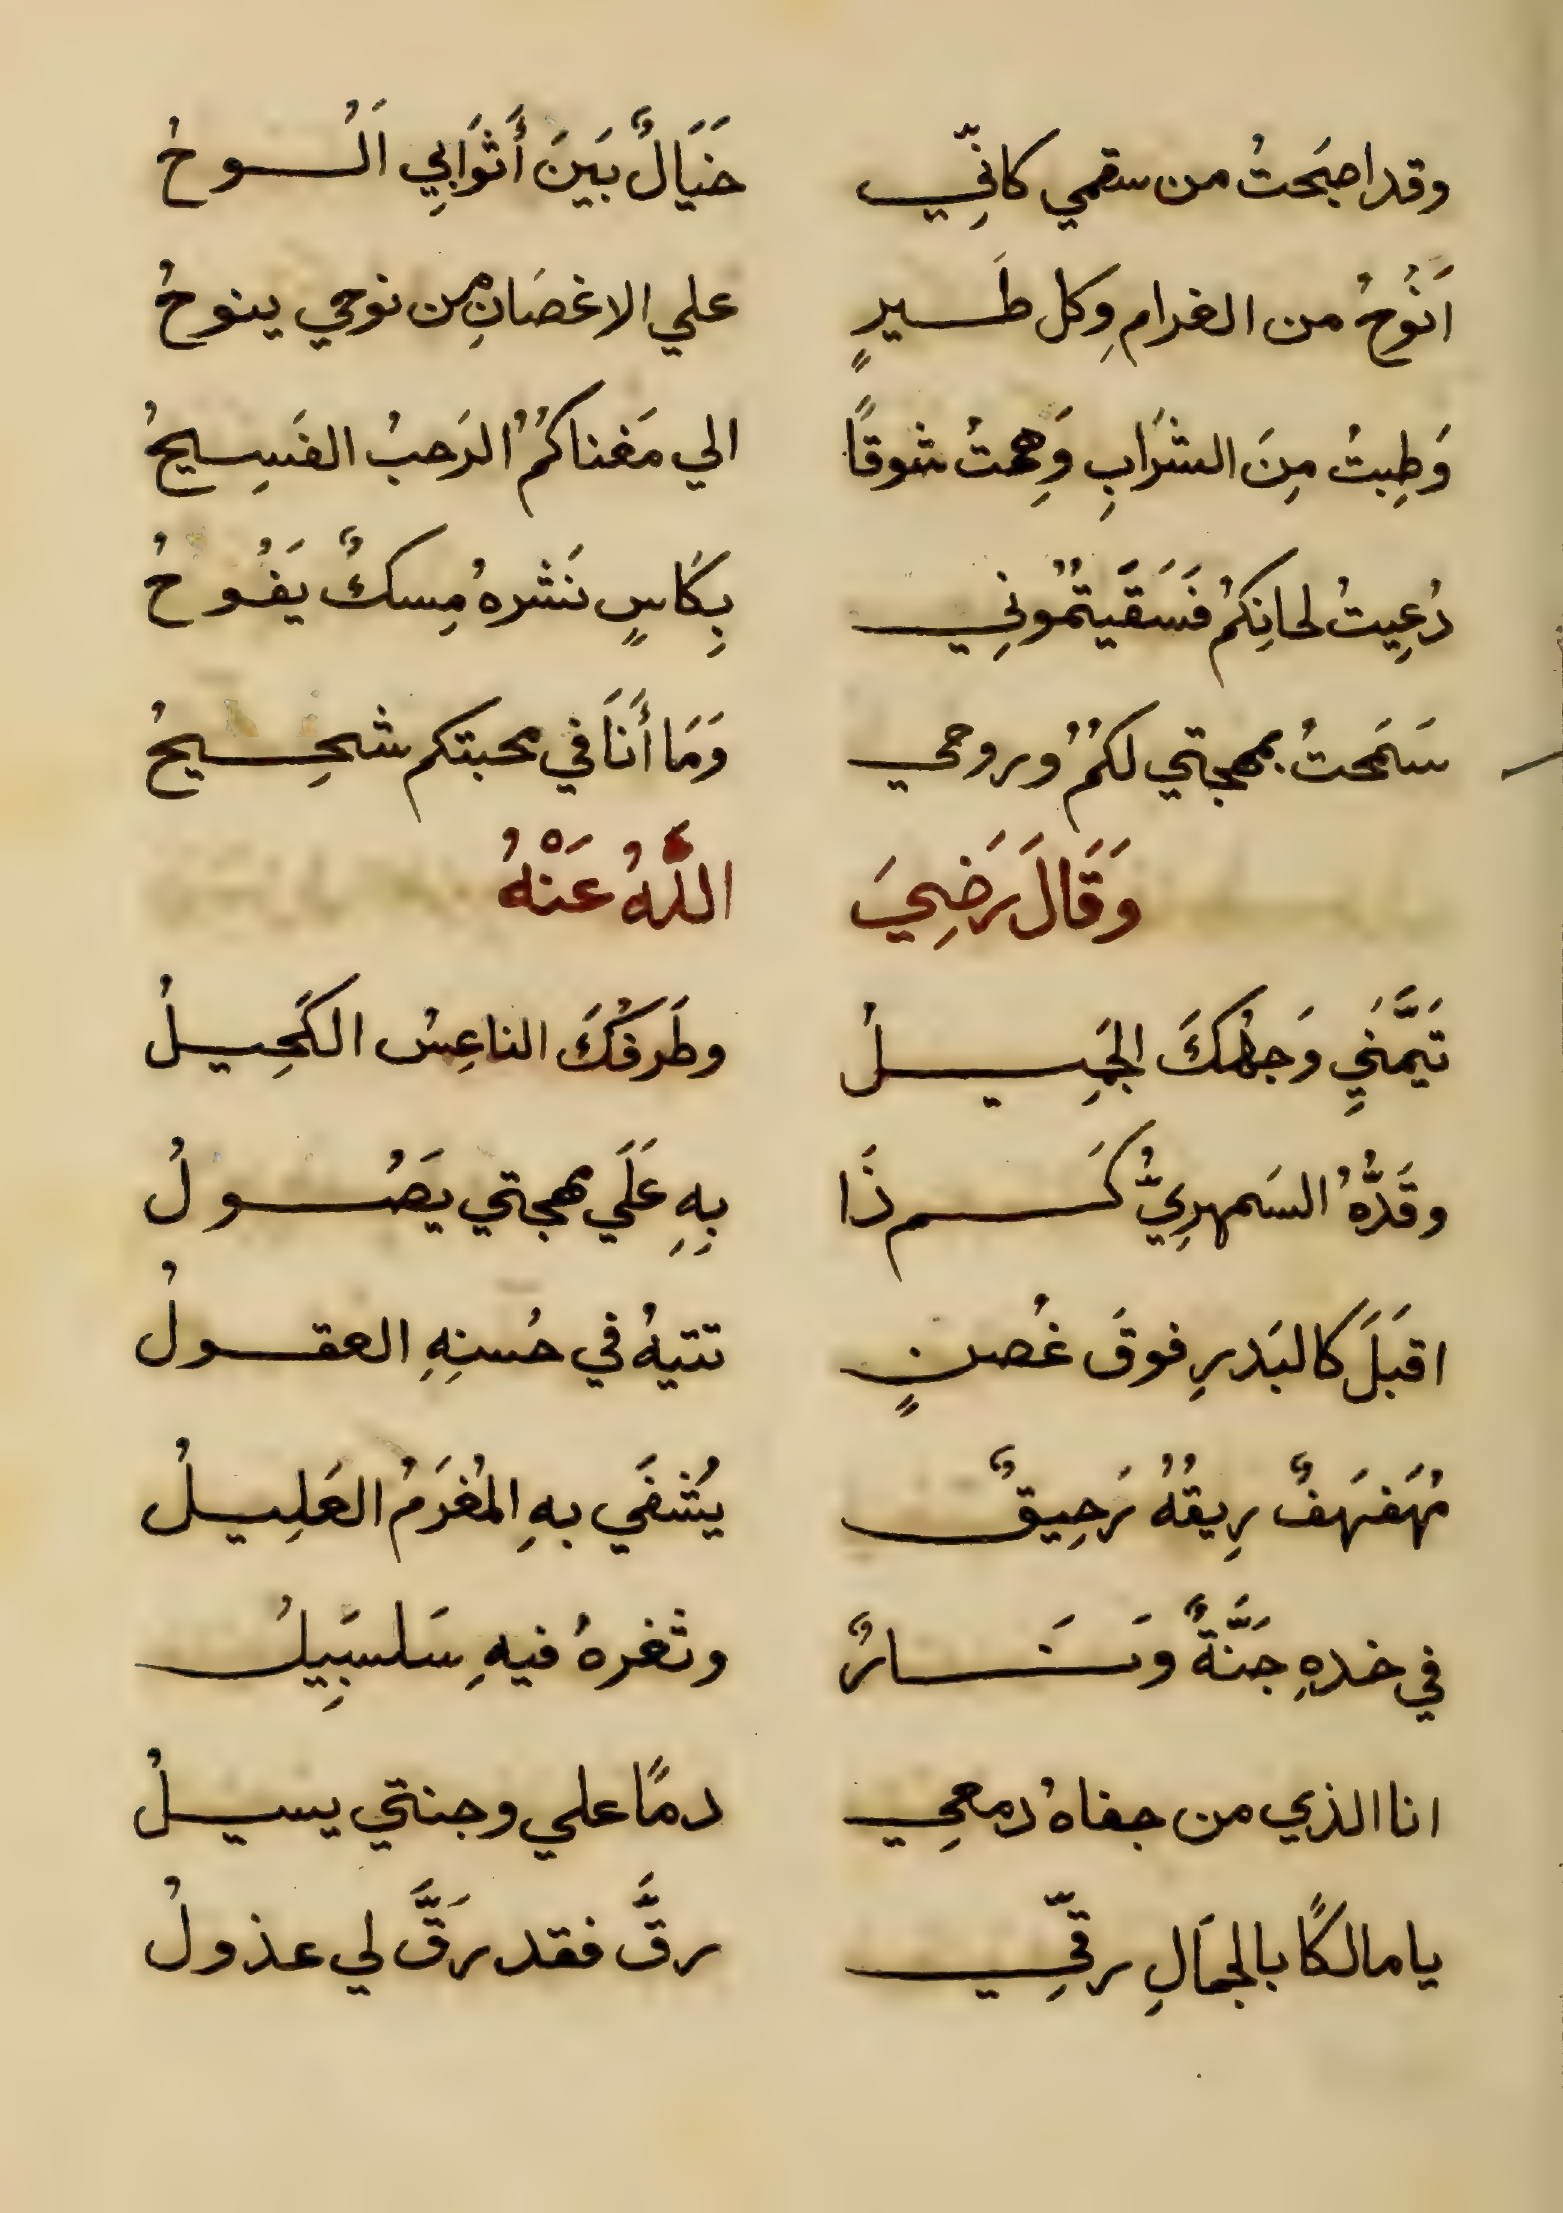 وقد اصبَحتُ من سقمي كانِّي خَيَالٌ بَينَ أَثوَابِي اَلُوحُ
اَنُوحُ من الغرامِ وكل طَيرٍ علي الاغصَانِ من نوحي ينوحُ
وَطِبتُ مِنَ الشَرَابِ وَهِمتُ شوقًا الي مَغناكُمُ الرَحبُ الفَسِيحُ
دُعِيتُ لحانِكُم فَسَقَيتُمُونِي بِكَاسٍ نَشرهُ مِسكٌ يَفُوحُ
سَمَحتُ بمهجتي لكُمُ وروحي وَمَا أَنَا في محبتكم شحِيحُ
وَقَالَ رَضِيَ اللَّهُ عَنْهُ
تَيَّمَنيِ وَجهُكَ الجَمِيلُ وطَرفُكَ الناعِسُ الكَحِيلُ
وقَدُّهُ السَمهرِيُّ كَم ذَا بِهِ عَلَي مهجتي يَصُولُ
اقبَلَ كالبَدرِ فوقَ غُصنٍ تتيهُ في حُسنِهِ العقولُ
مُهَفهَفٌ رِيقُهُ رَحِيقٌ يُشفَي بهِ المُغرَمُ العَلِيلُ
في خدهِ جَنَّةٌ ونَارٌ وثغرهُ فيهِ سَلسَبِيلُ
انا الذي من جفاهُ دمعِي دمًا علي وجنتي يسيلُ
يا مالكًا بالجمَالِ رقِّي رقَّ فقد رَقَّ لي عذولُ